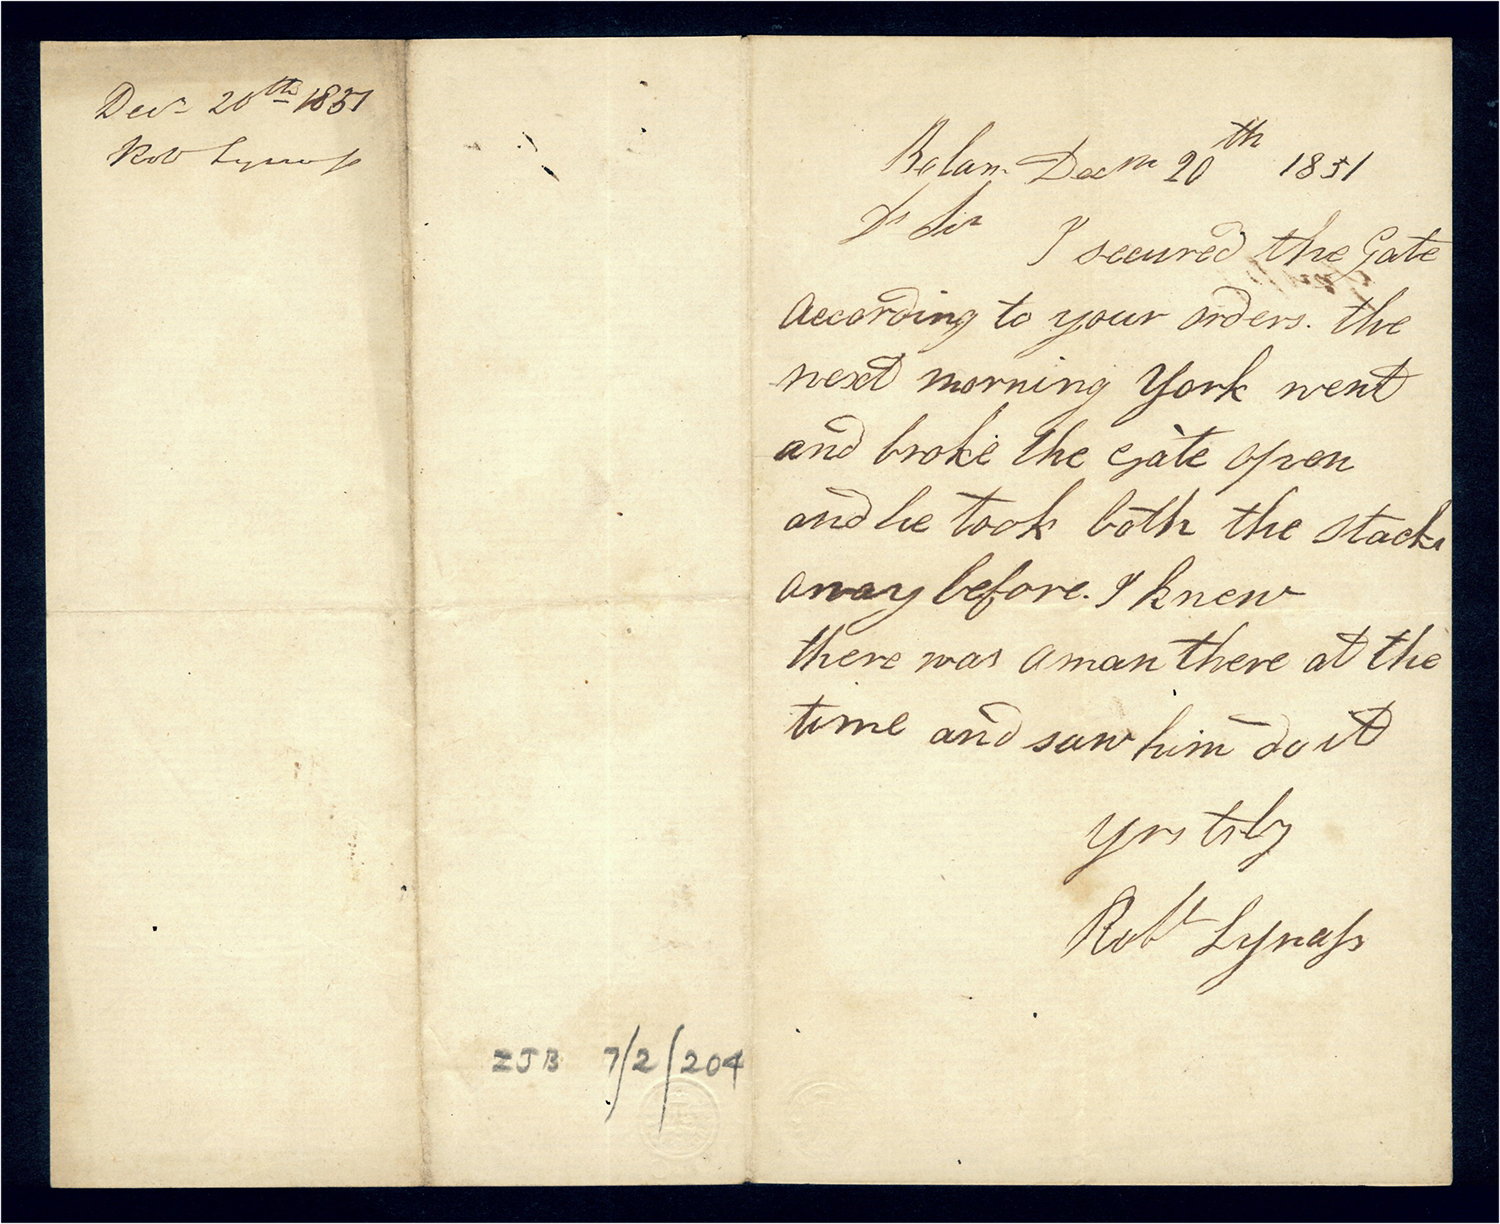 Decr 20th 1851
Rob Lynass
Bolam Decm 20th 1851
Dr Sir I secured the Gate
according to your orders. the
next morning York went
and broke the Gate open
and he took both the stacks
away before. I knew
there was a man there at the
time and saw him do it
Yrs trly
Robt Lynass
ZJB 7/2/204